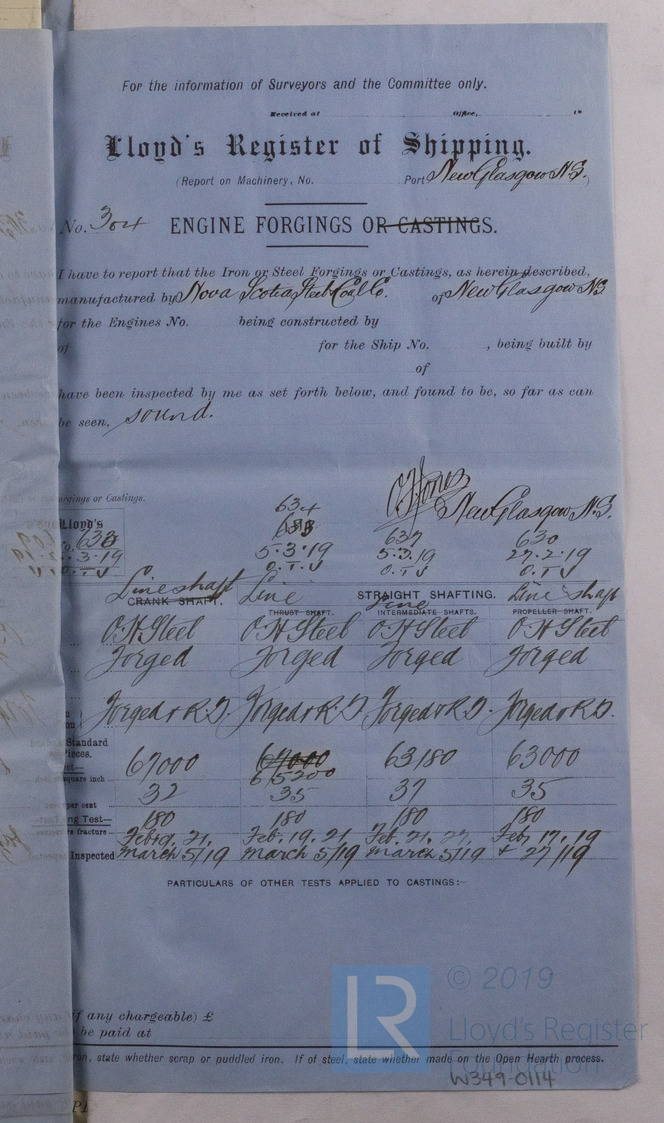 For the information of Surveyors and the Committee only.
Received at Office, 19
Lloyd's Register of Shipping.
(Report on Machinery, No. Port New Glasgow N.S.)
No. 304 ENGINE FORGINGS OR CASTINGS.
I have to report that the Iron or Steel Forgings or Castings, as herein described,
manufactured by Nova Scotia Steel & Coal Co. of New Glasgow N.S.
for the Engines No. being constructed by
of for the Ship No. , being built by
of
have been inspected by me as set forth below, and found to be, so far as can
be seen, sound.
orgings or Castings.
New Glasgow N.S.
634
Lloyd's
No. 638 633 637 630
5.3.19 5.3.19 5.3.19 27.2.19
O.T.J O.T.J O.T.J O.T.J
Line shaft Line STRAIGHT SHAFTING. Line shaft
CRANK SHAFT. THRUST SHAFT. Line INTERMEDIATE SHAFTS. PROPELLER SHAFT.
O.H. Steel O.H. Steel O.H. Steel O.H. Steel
Forged Forged Forged Forged
Forged & R.D. Forged & R.D. Forged & R.D. Forged & R.D.
Standard
Pieces.
67000 64000 63180 63000
square inch 65200
per cent 32 35 37 35
ing Test— 180 180 180 180
fracture Feb 19. 21. Feb. 19. 21 Feb. 21. 22. Feb. 17. 19
Inspected March 5/19 March 5/19 March 5/19 & 27/19
PARTICULARS OF OTHER TESTS APPLIED TO CASTINGS:—
if any chargeable) £
be paid at
iron, state whether scrap or puddled iron. If of steel, state whether made on the Open Hearth process.
LR
© 2019
Lloyd's Register
Foundation
W349-0114